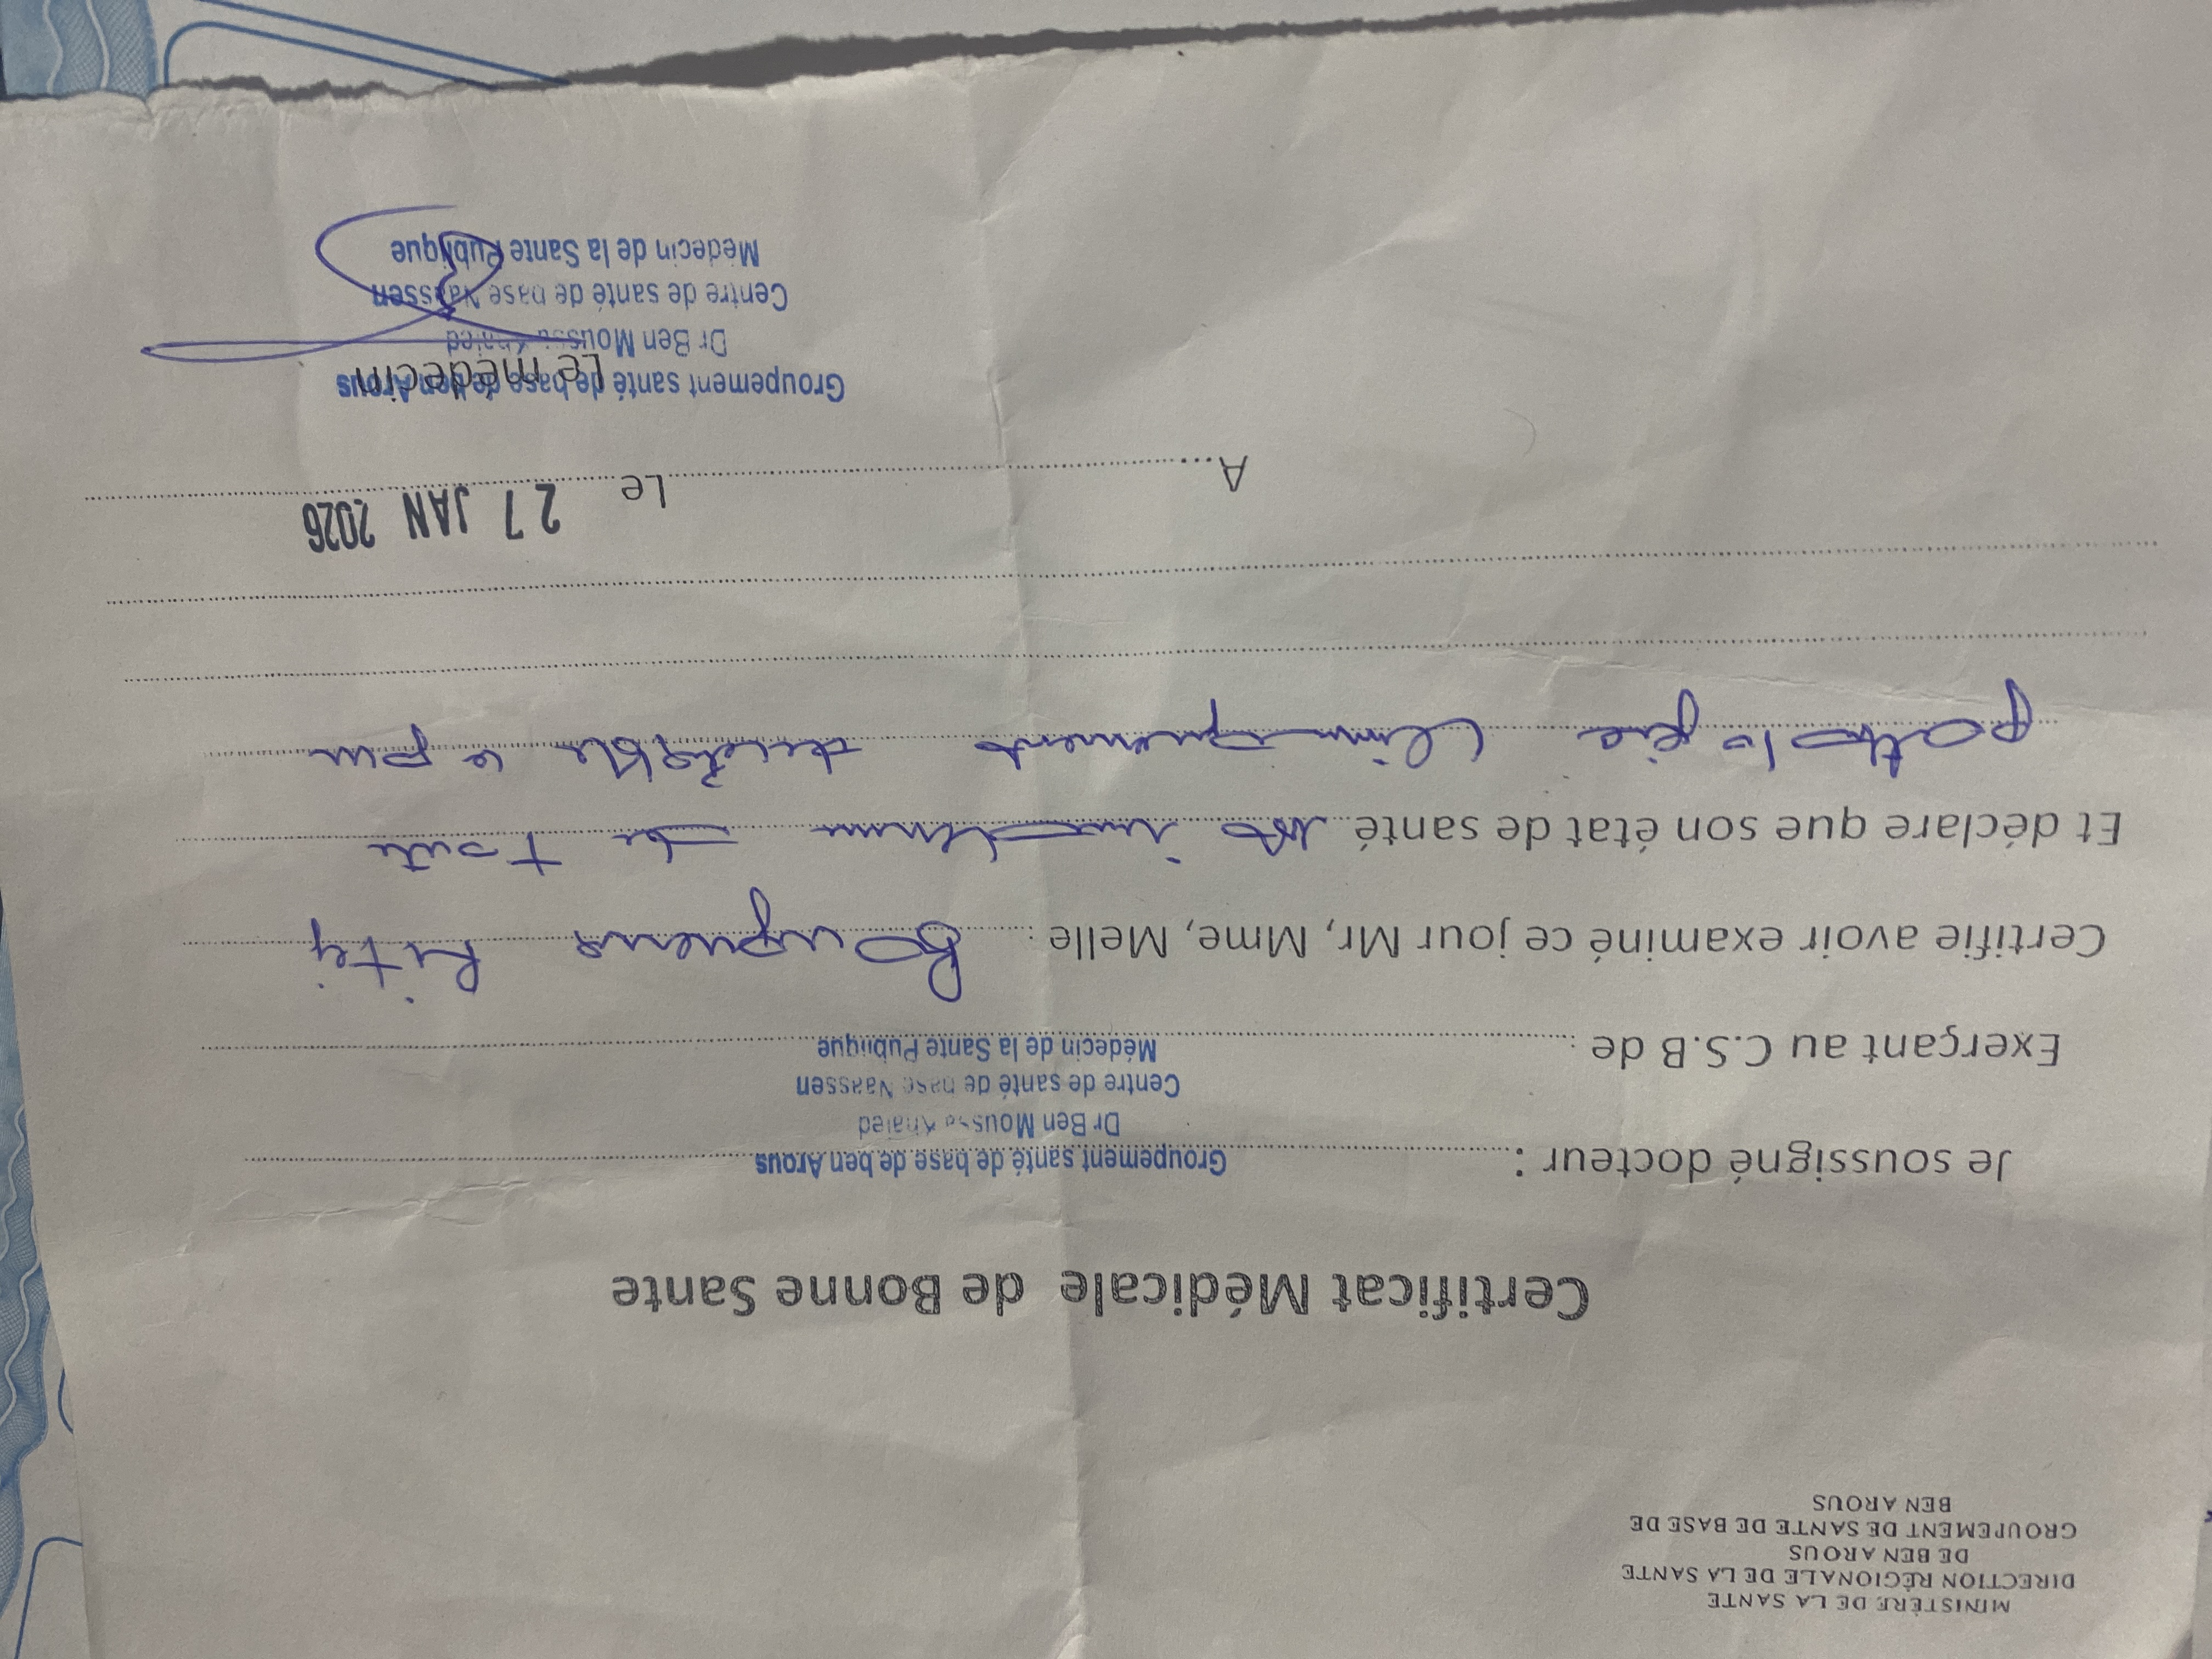 MINISTÈRE DE LA SANTE
DIRECTION RÉGIONALE DE LA SANTE
DE BEN AROUS
GROUPEMENT DE SANTE DE BASE DE
BEN AROUS
Certificat Médicale de Bonne Sante
Je soussigné docteur :
Groupement santé de base de ben Arous
Dr Ben Moussa Khaled
Centre de santé de base Naassen
Médecin de la Sante Publique
Exerçant au C.S.B de :
Certifie avoir examiné ce jour Mr, Mme, Melle :
Et déclare que son état de santé est de toute
pathologie cliniquement décelable ce jour
A Le 27 JAN 2026
Le médecin
Groupement santé de base de ben Arous
Dr Ben Moussa Khaled
Centre de santé de base Naassen
Médecin de la Sante Publique